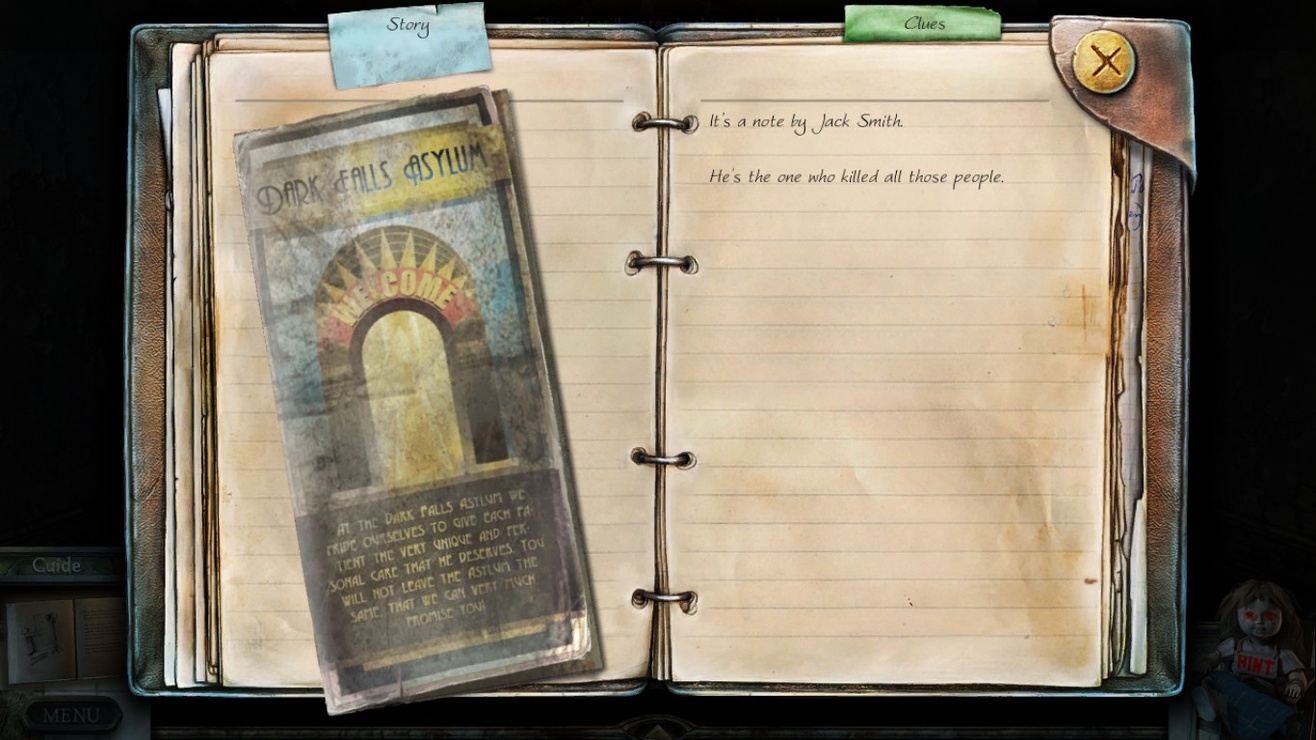 Story
Clues
DARK FALLS ASYLUM
WELCOME
AT THE DARK FALLS ASYLUM WE
PRIDE OURSELVES TO GIVE EACH PA-
TIENT THE VERY UNIQUE AND PER-
SONAL CARE THAT HE DESERVES. YOU
WILL NOT LEAVE THE ASYLUM THE
SAME, THAT WE CAN VERY MUCH
PROMISE YOU!
It's a note by Jack Smith.
He's the one who killed all those people.
Guide
MENU
HINT